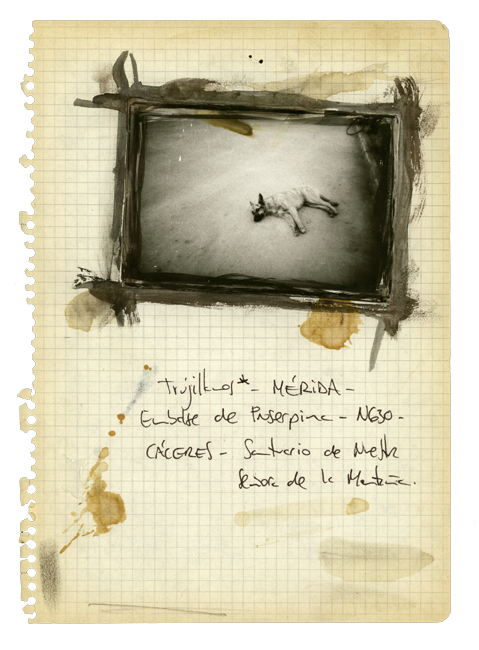 Trujillanos* - MÉRIDA -
Embalse de Proserpina - N630 -
CÁCERES - Santuario de Nuestra
Señora de la Montaña.